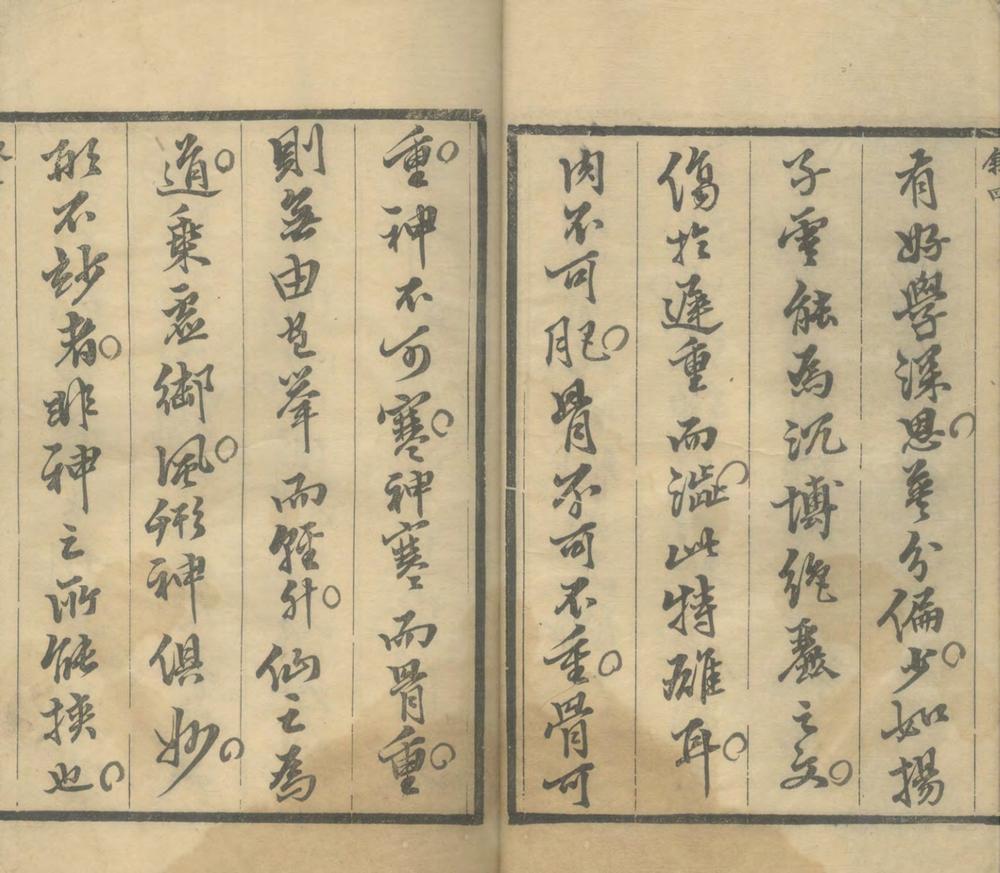 叙四
有好學深思。分偏少。如揚
子雲能爲沉博絶麗之文。
傷於遲重而澁。此特耳。
肉不可肥。骨不可不重。骨可
重。神不可寒。神寒而骨重。
則無由色舉而輕升。仙之爲
道。乘虛御風。形神俱妙。
形不妙者。非神之所能挾也。